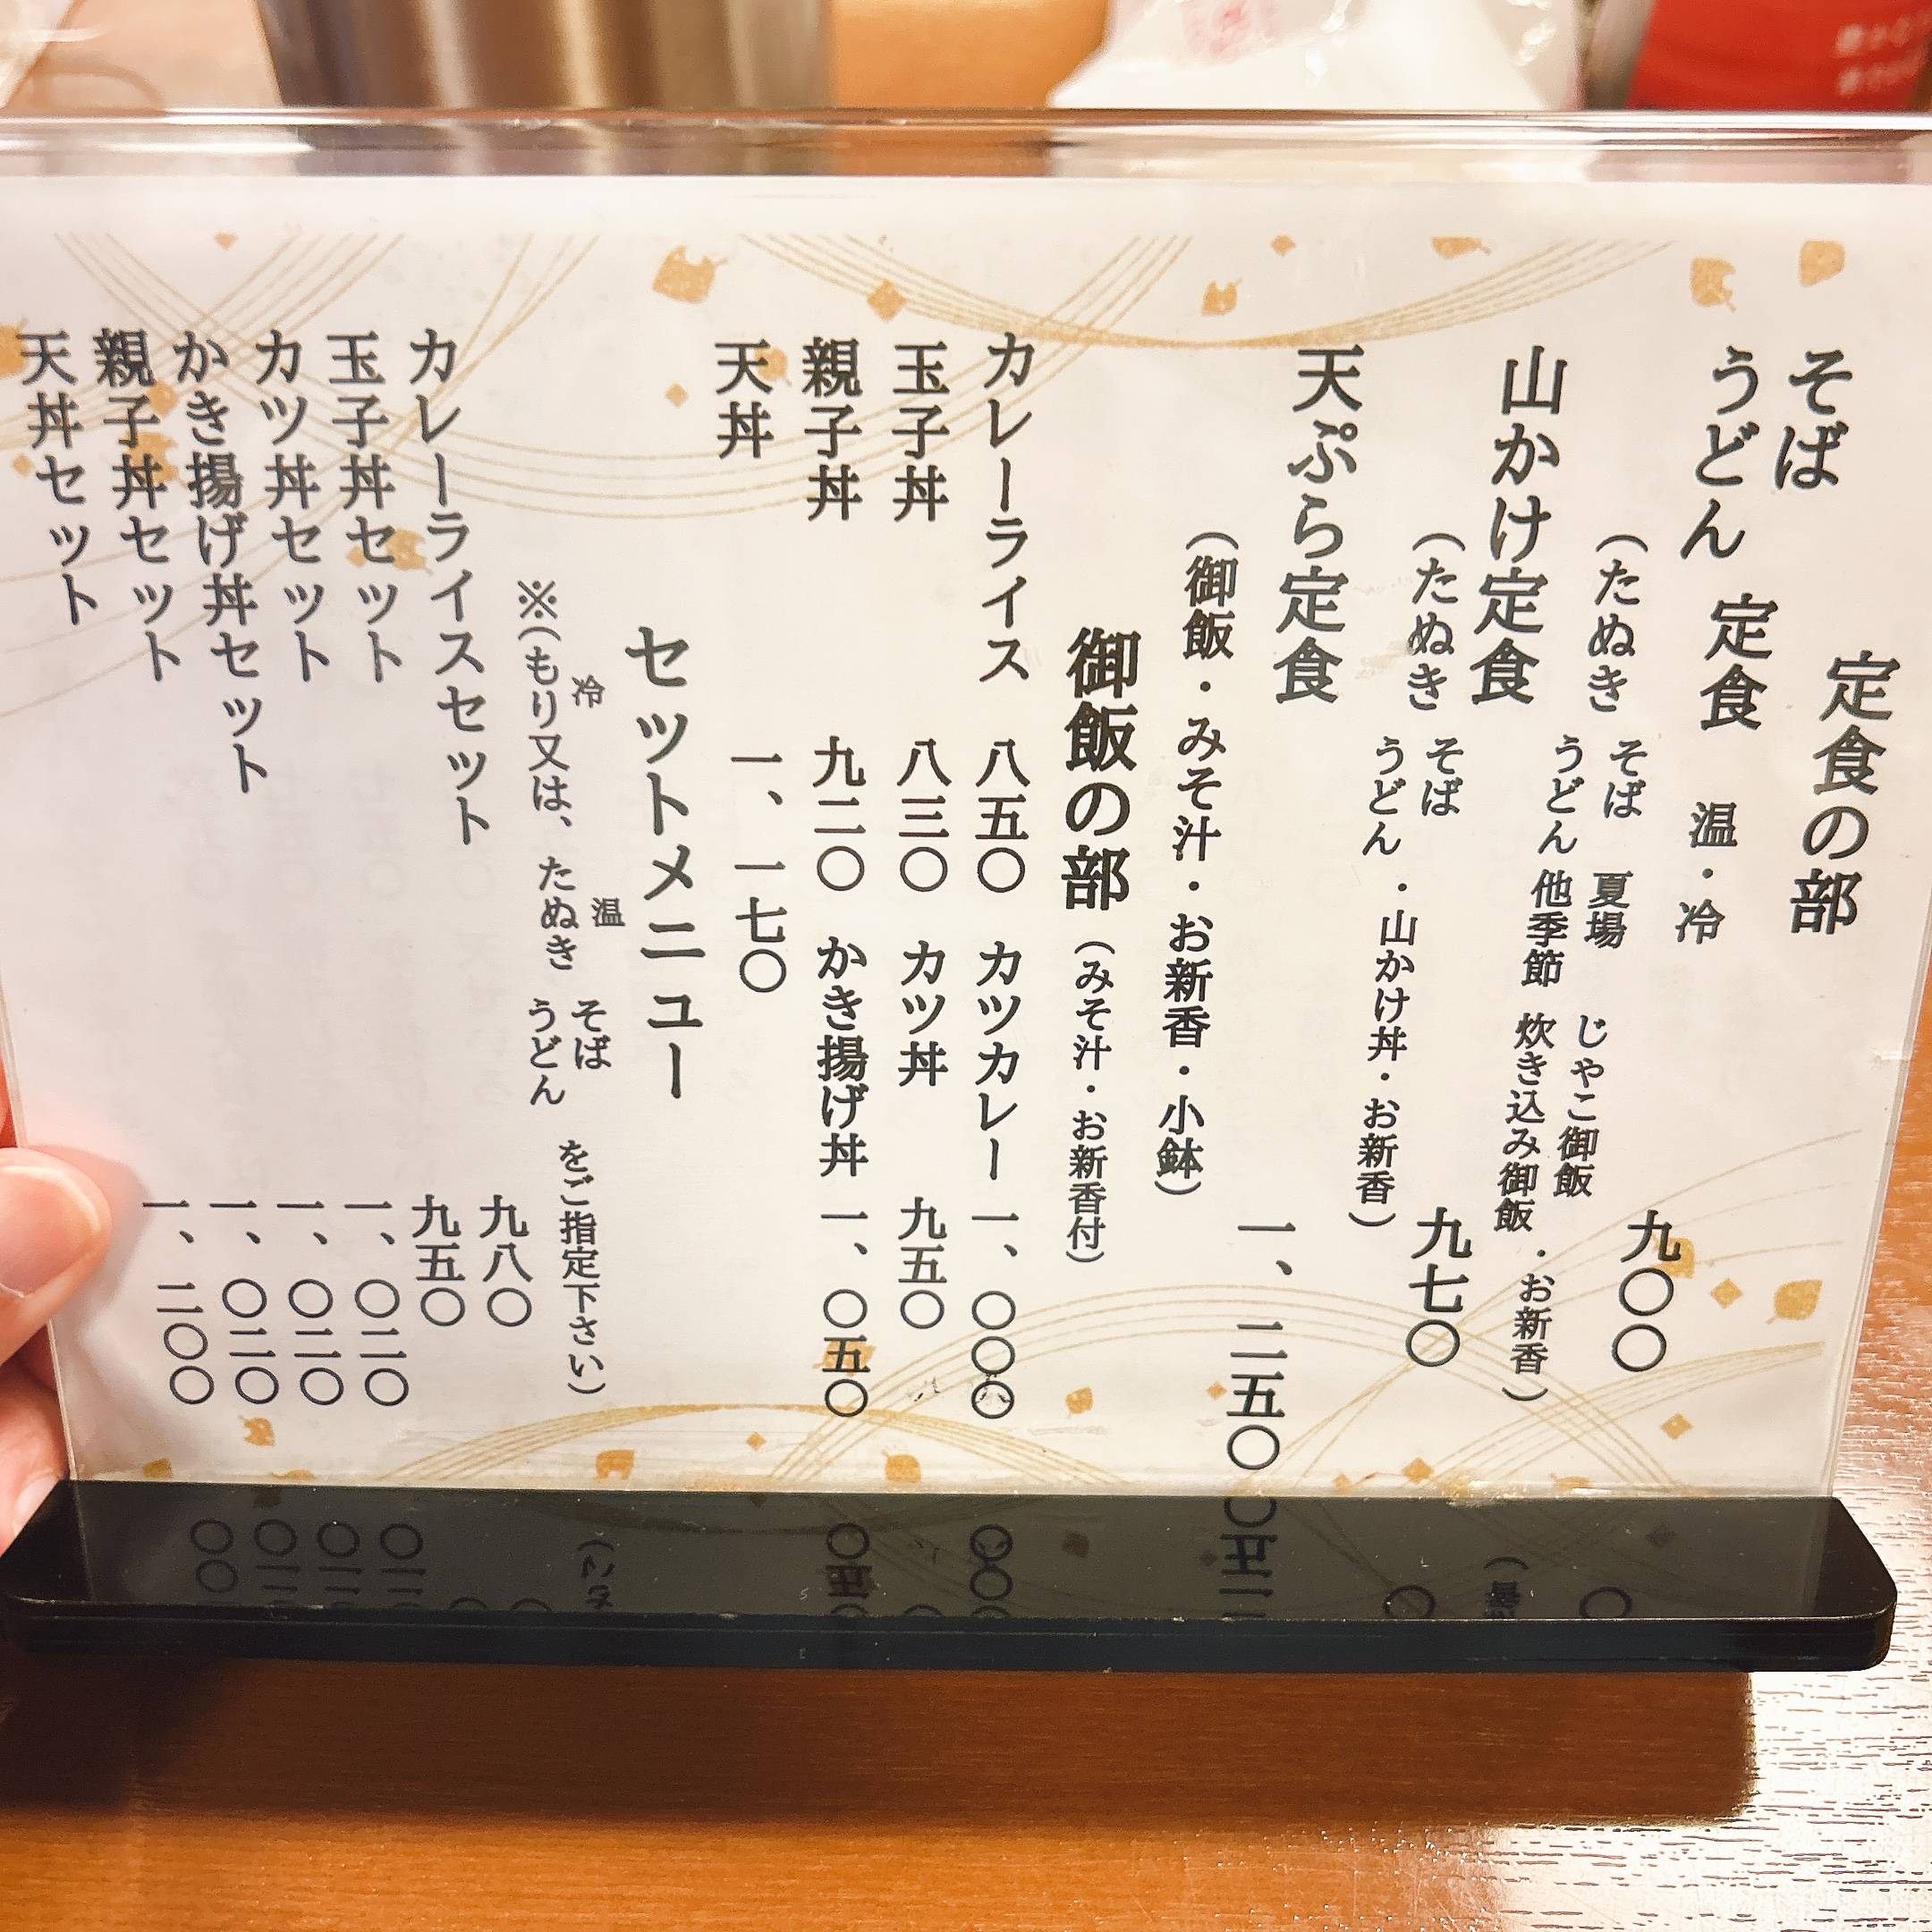 定食の部
そば
うどん 定食 温・冷 九〇〇
(たぬき そば うどん 夏場 じゃこ御飯 他季節 炊き込み御飯 ・お新香)
山かけ定食 九七〇
(たぬき そば うどん ・山かけ丼・お新香)
天ぷら定食 一、二五〇
(御飯・みそ汁・お新香・小鉢)
御飯の部 (みそ汁・お新香付)
カレーライス 八五〇 カツカレー 一、〇〇〇
玉子丼 八三〇 カツ丼 九五〇
親子丼 九二〇 かき揚げ丼 一、〇五〇
天丼 一、一七〇
セットメニュー
※(冷もり又は、温たぬき そば うどん をご指定下さい)
カレーライスセット 九八〇
玉子丼セット 九五〇
カツ丼セット 一、〇二〇
かき揚げ丼セット 一、〇二〇
親子丼セット 一、〇二〇
天丼セット 一、二〇〇